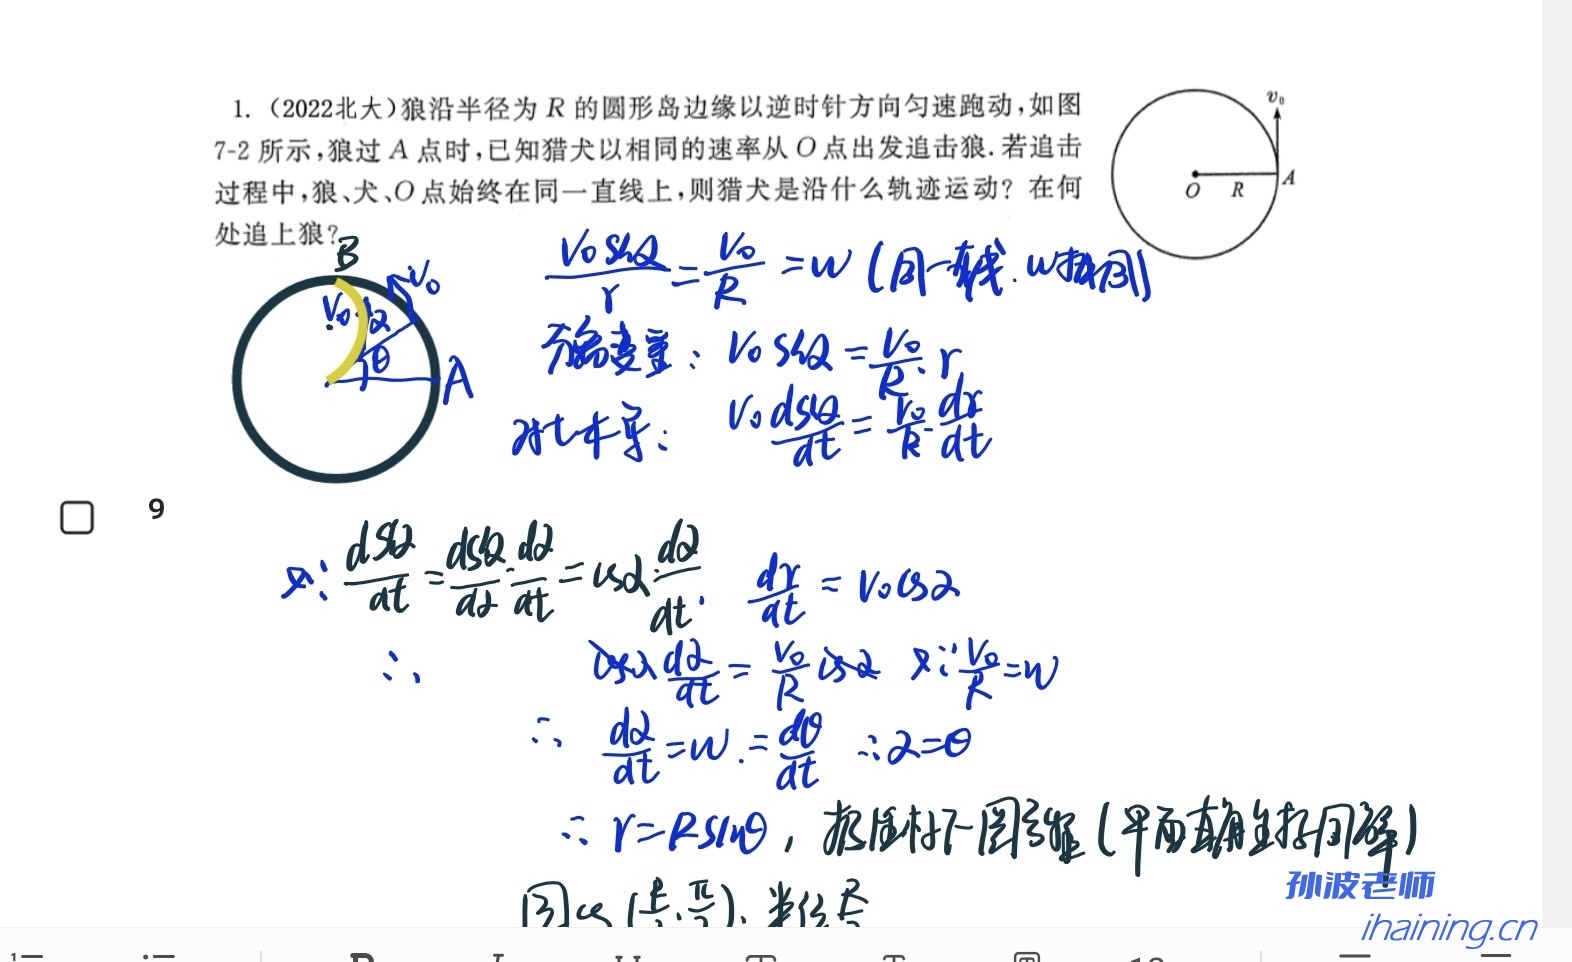 1.（2022北大）狼沿半径为 R 的圆形岛边缘以逆时针方向匀速跑动，如图
7-2 所示，狼过 A 点时，已知猎犬以相同的速率从 O 点出发追击狼. 若追击
过程中，狼、犬、O 点始终在同一直线上，则猎犬是沿什么轨迹运动？在何
处追上狼？
v₀
O R A
B
v₀
v₀ α
θ
A
v₀sinα/r = v₀/R = w (同一直线. w相同)
分离变量： v₀sinα = v₀/R · r
对t求导： v₀ dsinα/dt = v₀/R · dr/dt
9
又∵ dsinα/dt = dsinα/dα · dα/dt = cosα · dα/dt . dr/dt = v₀cosα
∴ cosα dα/dt = v₀/R cosα 又∵ v₀/R = w
∴ dα/dt = w . = dθ/dt ∴ α = θ
∴ r = Rsinθ , 极坐标下圆方程 (平面直角坐标同解)
孙波老师
ihaining.cn